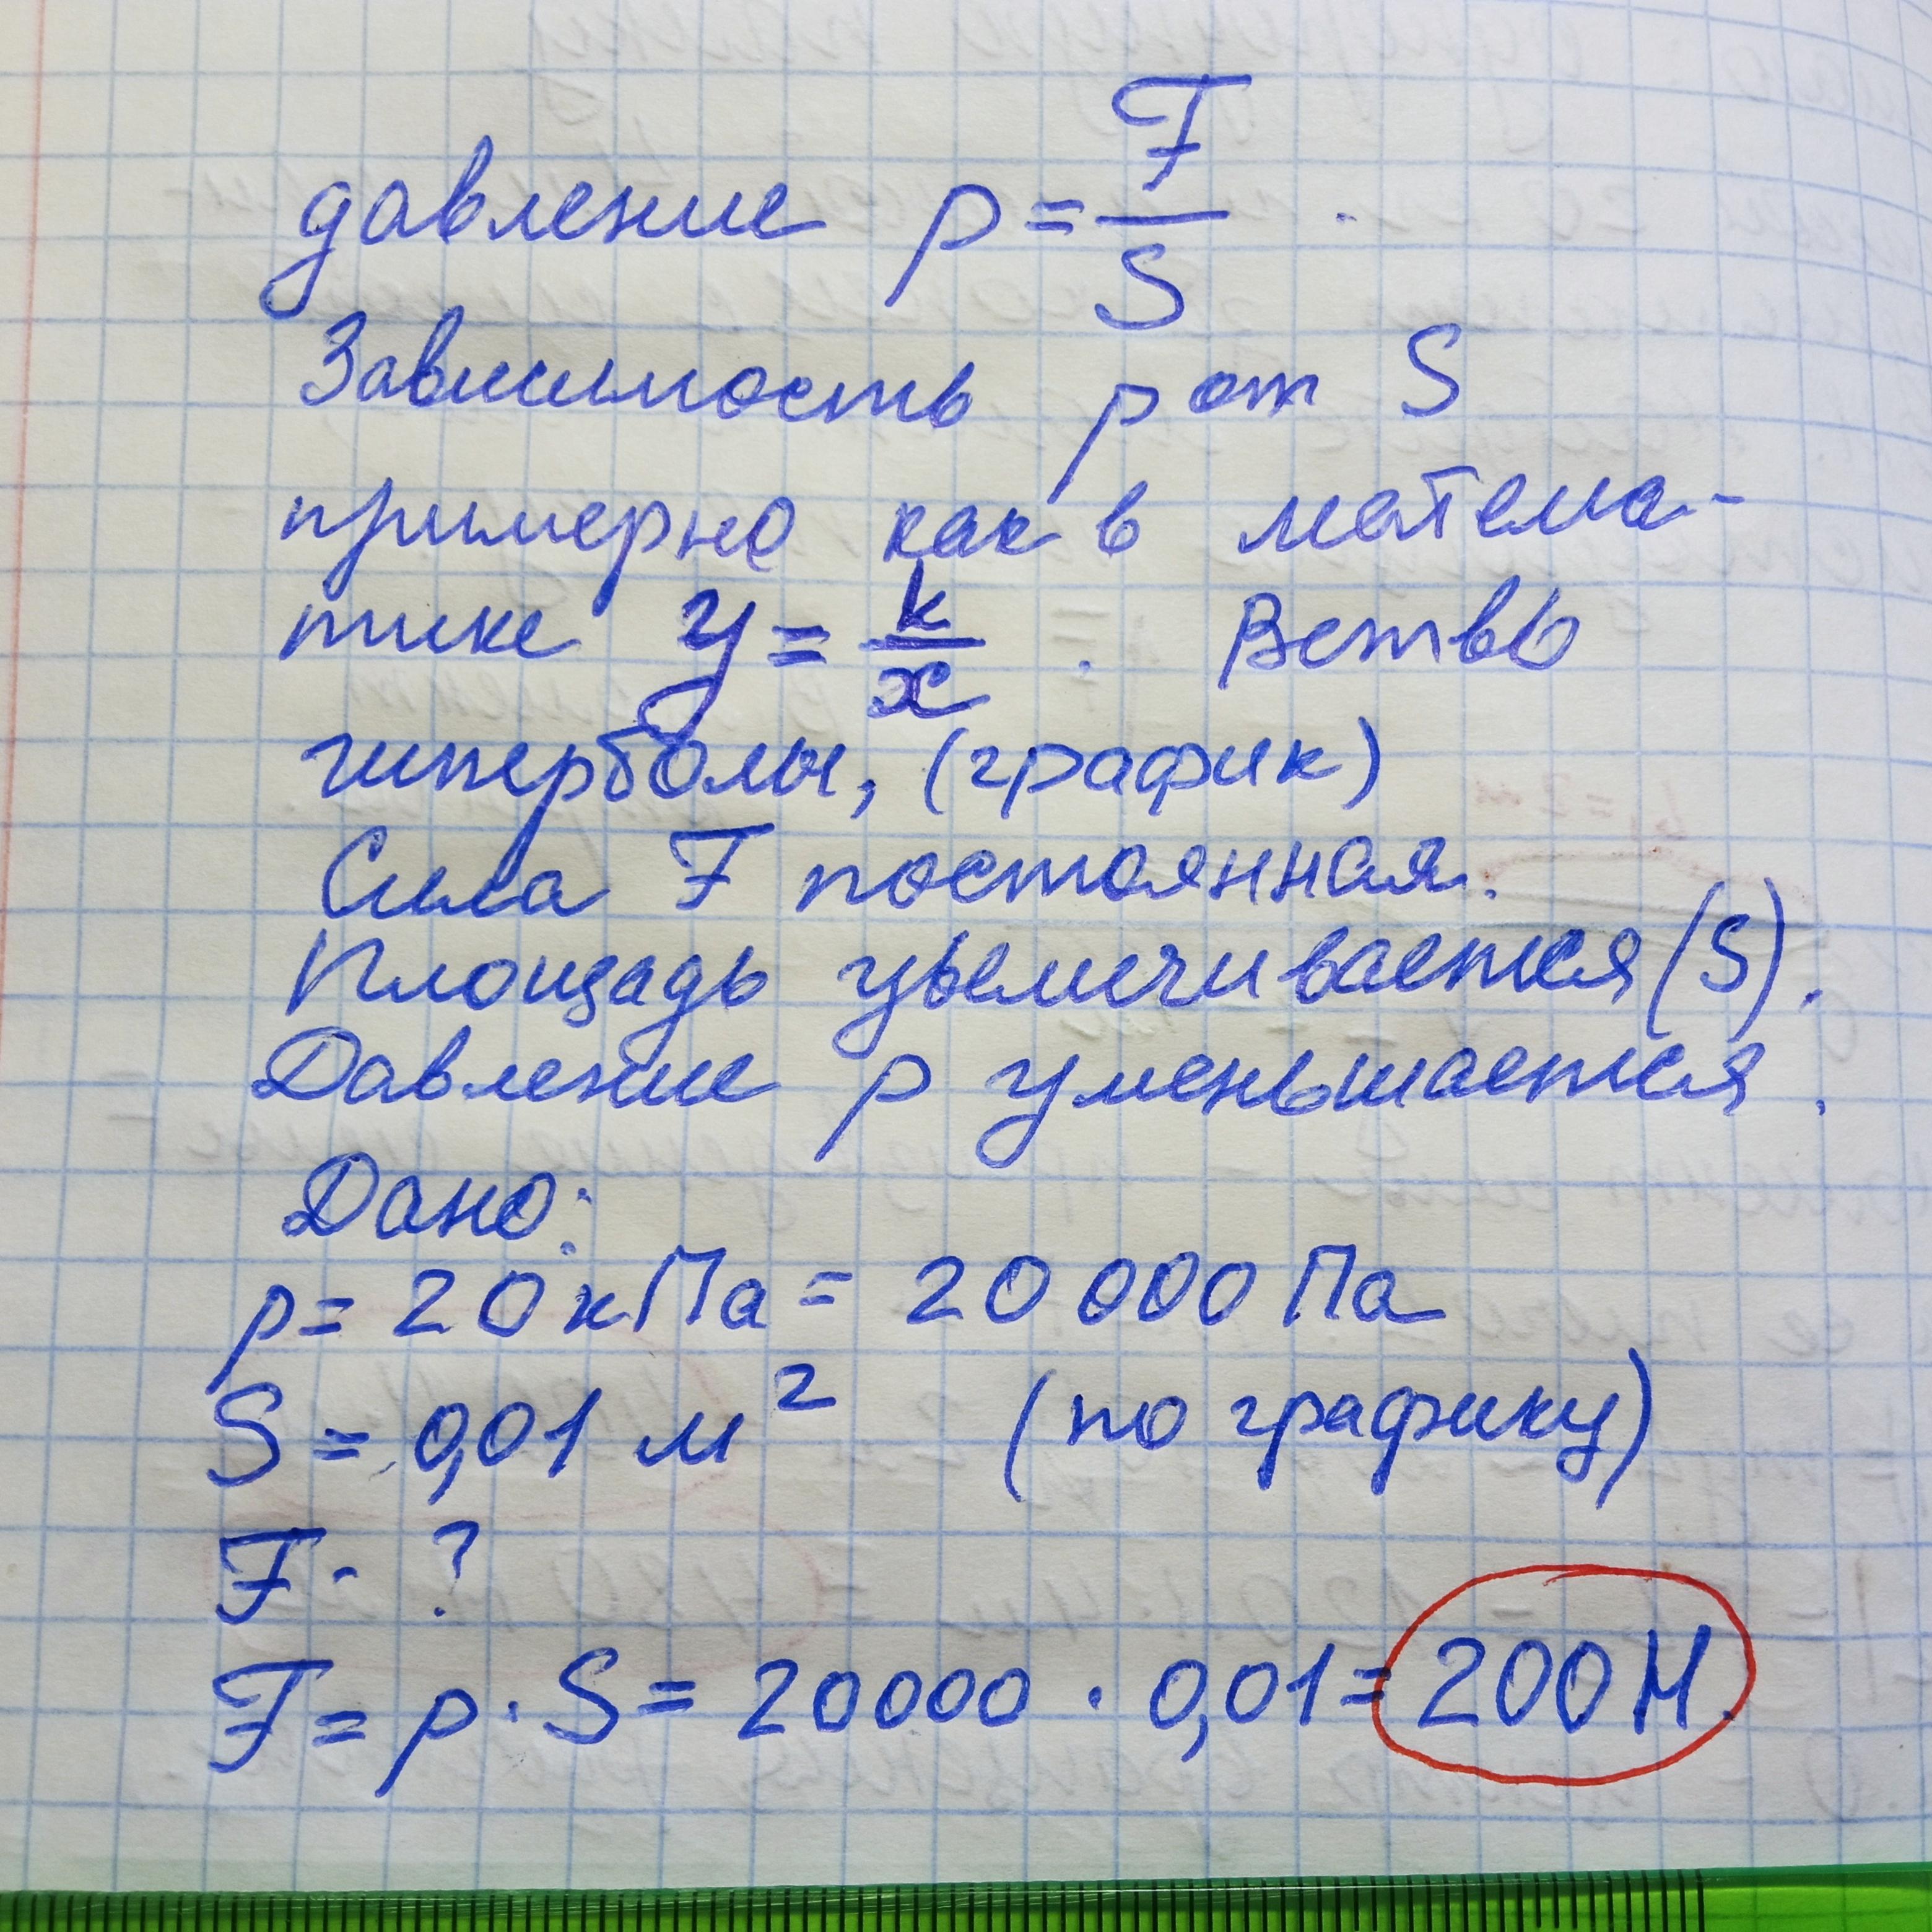 давление p = F/S.
Зависимость p от S
примерно как в матема-
тике y = k/x. Ветвь
гиперболы, (график)
Сила F постоянная.
Площадь увеличивается (S).
Давление p уменьшается.
Дано:
p = 20 кПа = 20 000 Па
S = 0,01 м² (по графику)
F - ?
F = p · S = 20000 · 0,01 = 200 Н.